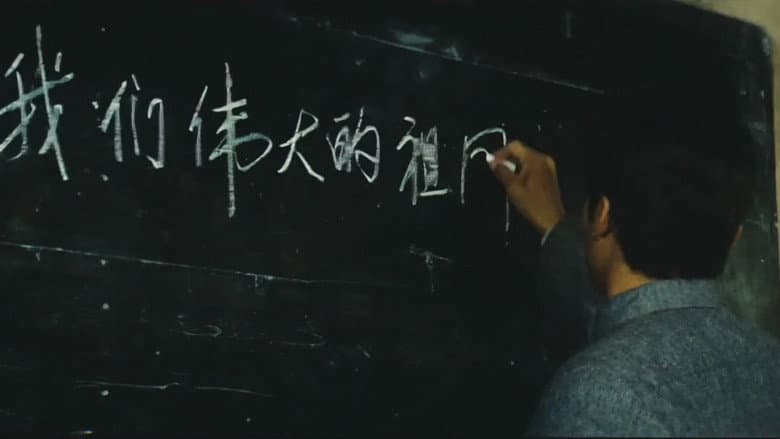 我们伟大的祖